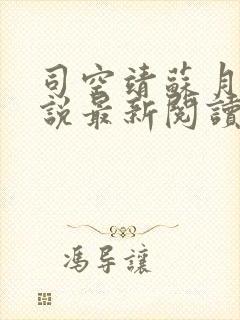 司空靖蘇月
說最新閱讀
馮导讓